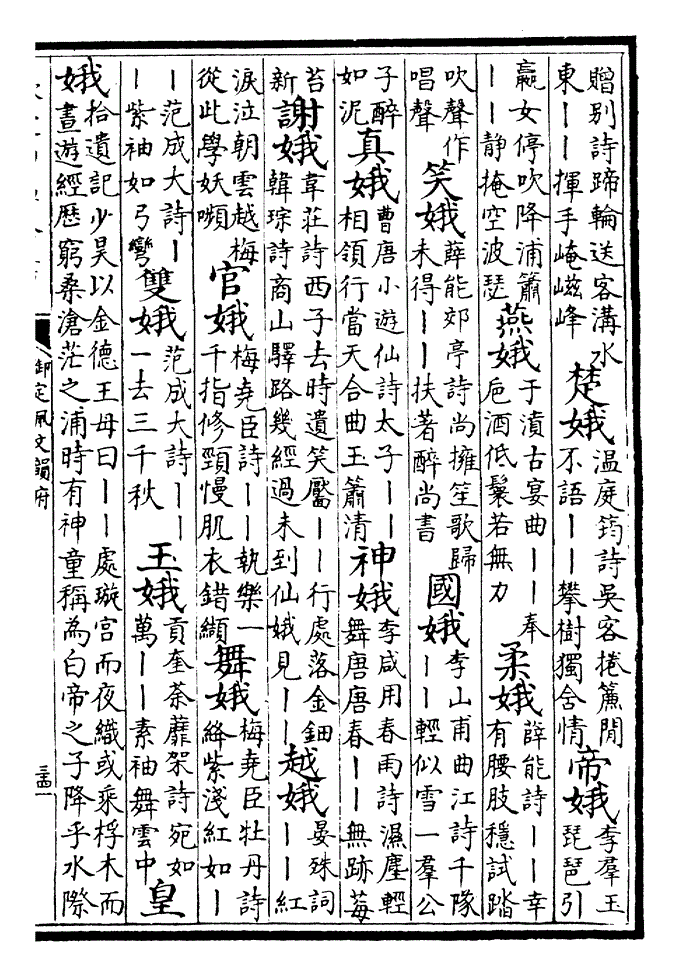 贈别詩蹄輪送客溝水
東——揮手崦嵫峰
楚娥
温庭筠詩吳客捲簾閒
不語——攀樹獨含情
帝娥
李羣玉
琵琶引
嬴女停吹降浦簫
——静掩空波瑟
燕娥
于濆古宴曲——奉
巵酒低鬟若無力
柔娥
薛能詩——幸
有腰肢穩試踏
吹聲作
唱聲
笑娥
薛能郊亭詩尚擁笙歌歸
未得——扶著醉尚書
國娥
李山甫曲江詩千隊
——輕似雪一羣公
子醉
如泥
真娥
曹唐小遊仙詩太子——
相領行當天合曲玉簫清
神娥
李咸用春雨詩濕塵輕
舞唐唐春——無跡莓
苔
新
謝娥
韋莊詩西子去時遺笑靨——行處落金鈿
韓琮詩商山驛路幾經過未到仙娥見——
越娥
晏殊詞
——紅
淚泣朝雲越梅
從此學妖嚬
官娥
梅堯臣詩——執樂一
千指修頸慢肌衣錯纈
舞娥
梅堯臣牡丹詩
絳紫淺紅如—
—范成大詩—
—紫袖如弓彎
雙娥
范成大詩——
一去三千秋
玉娥
貢奎荼蘼架詩宛如
萬——素袖舞雲中
皇
娥
拾遺記少昊以金德王母曰——處璇宫而夜織或乘桴木而
晝遊經歷窮桑滄茫之浦時有神童稱為白帝之子降乎水際
御定佩文韻府